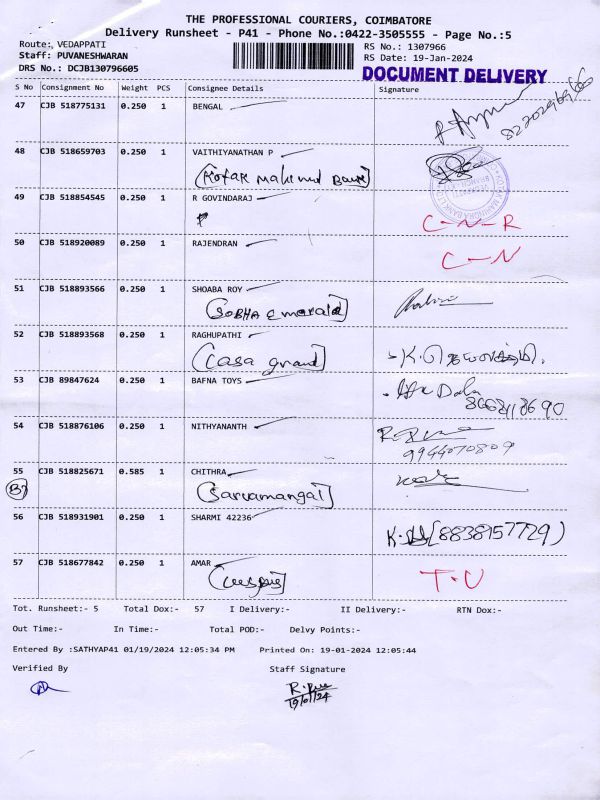 THE PROFESSIONAL COURIERS, COIMBATORE
Delivery Runsheet - P41 - Phone No.:0422-3505555 - Page No.:5
Route:, VEDAPPATI RS No.: 1307966
Staff: PUVANESHWARAN RS Date: 19-Jan-2024
DRS No.: DCJB130796605 DOCUMENT DELIVERY
S No Consignment No Weight PCS Consignee Details Signature
47 CJB 518775131 0.250 1 BENGAL
48 CJB 518659703 0.250 1 VAITHIYANATHAN P
(Kotak Mahind Bank)
49 CJB 518854545 0.250 1 R GOVINDARAJ
C-N-R
50 CJB 518920089 0.250 1 RAJENDRAN
C-N
51 CJB 518893566 0.250 1 SHOABA ROY
(SOBHA Emerald)
52 CJB 518893568 0.250 1 RAGHUPATHI
(Casa grand)
53 CJB 89847624 0.250 1 BAFNA TOYS
8668118690
54 CJB 518876106 0.250 1 NITHYANANTH
9944070809
55 CJB 518825671 0.585 1 CHITHRA
(Sarvamangal)
56 CJB 518931901 0.250 1 SHARMI 42236
(8838157729)
57 CJB 518677842 0.250 1 AMAR
T.U
Tot. Runsheet:- 5 Total Dox:- 57 I Delivery:- II Delivery:- RTN Dox:-
Out Time:- In Time:- Total POD:- Delvy Points:-
Entered By :SATHYAP41 01/19/2024 12:05:34 PM Printed On: 19-01-2024 12:05:44
Verified By Staff Signature
19/01/24